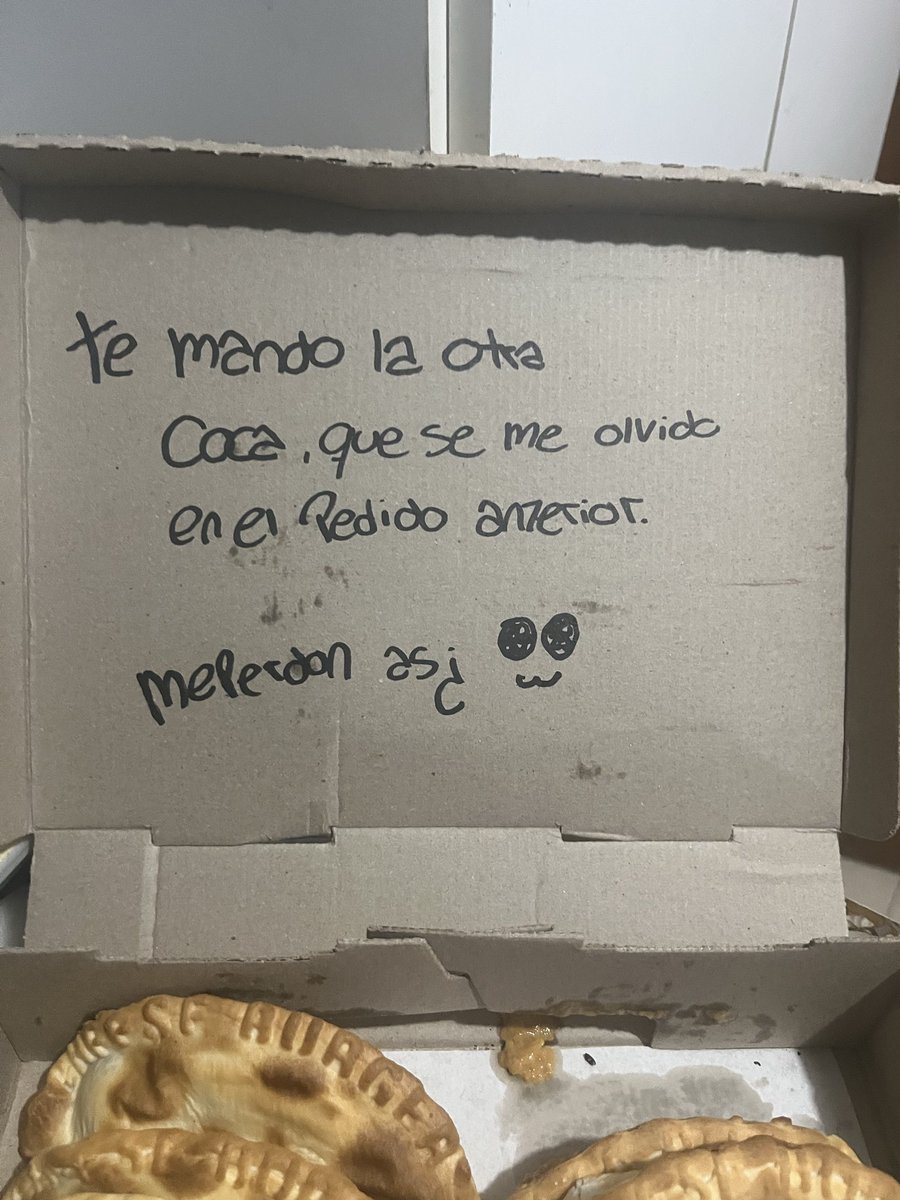 te mando la otra
Coca, que se me olvido
en el Pedido anterior.
me Perdon así
CHEESE BURGER